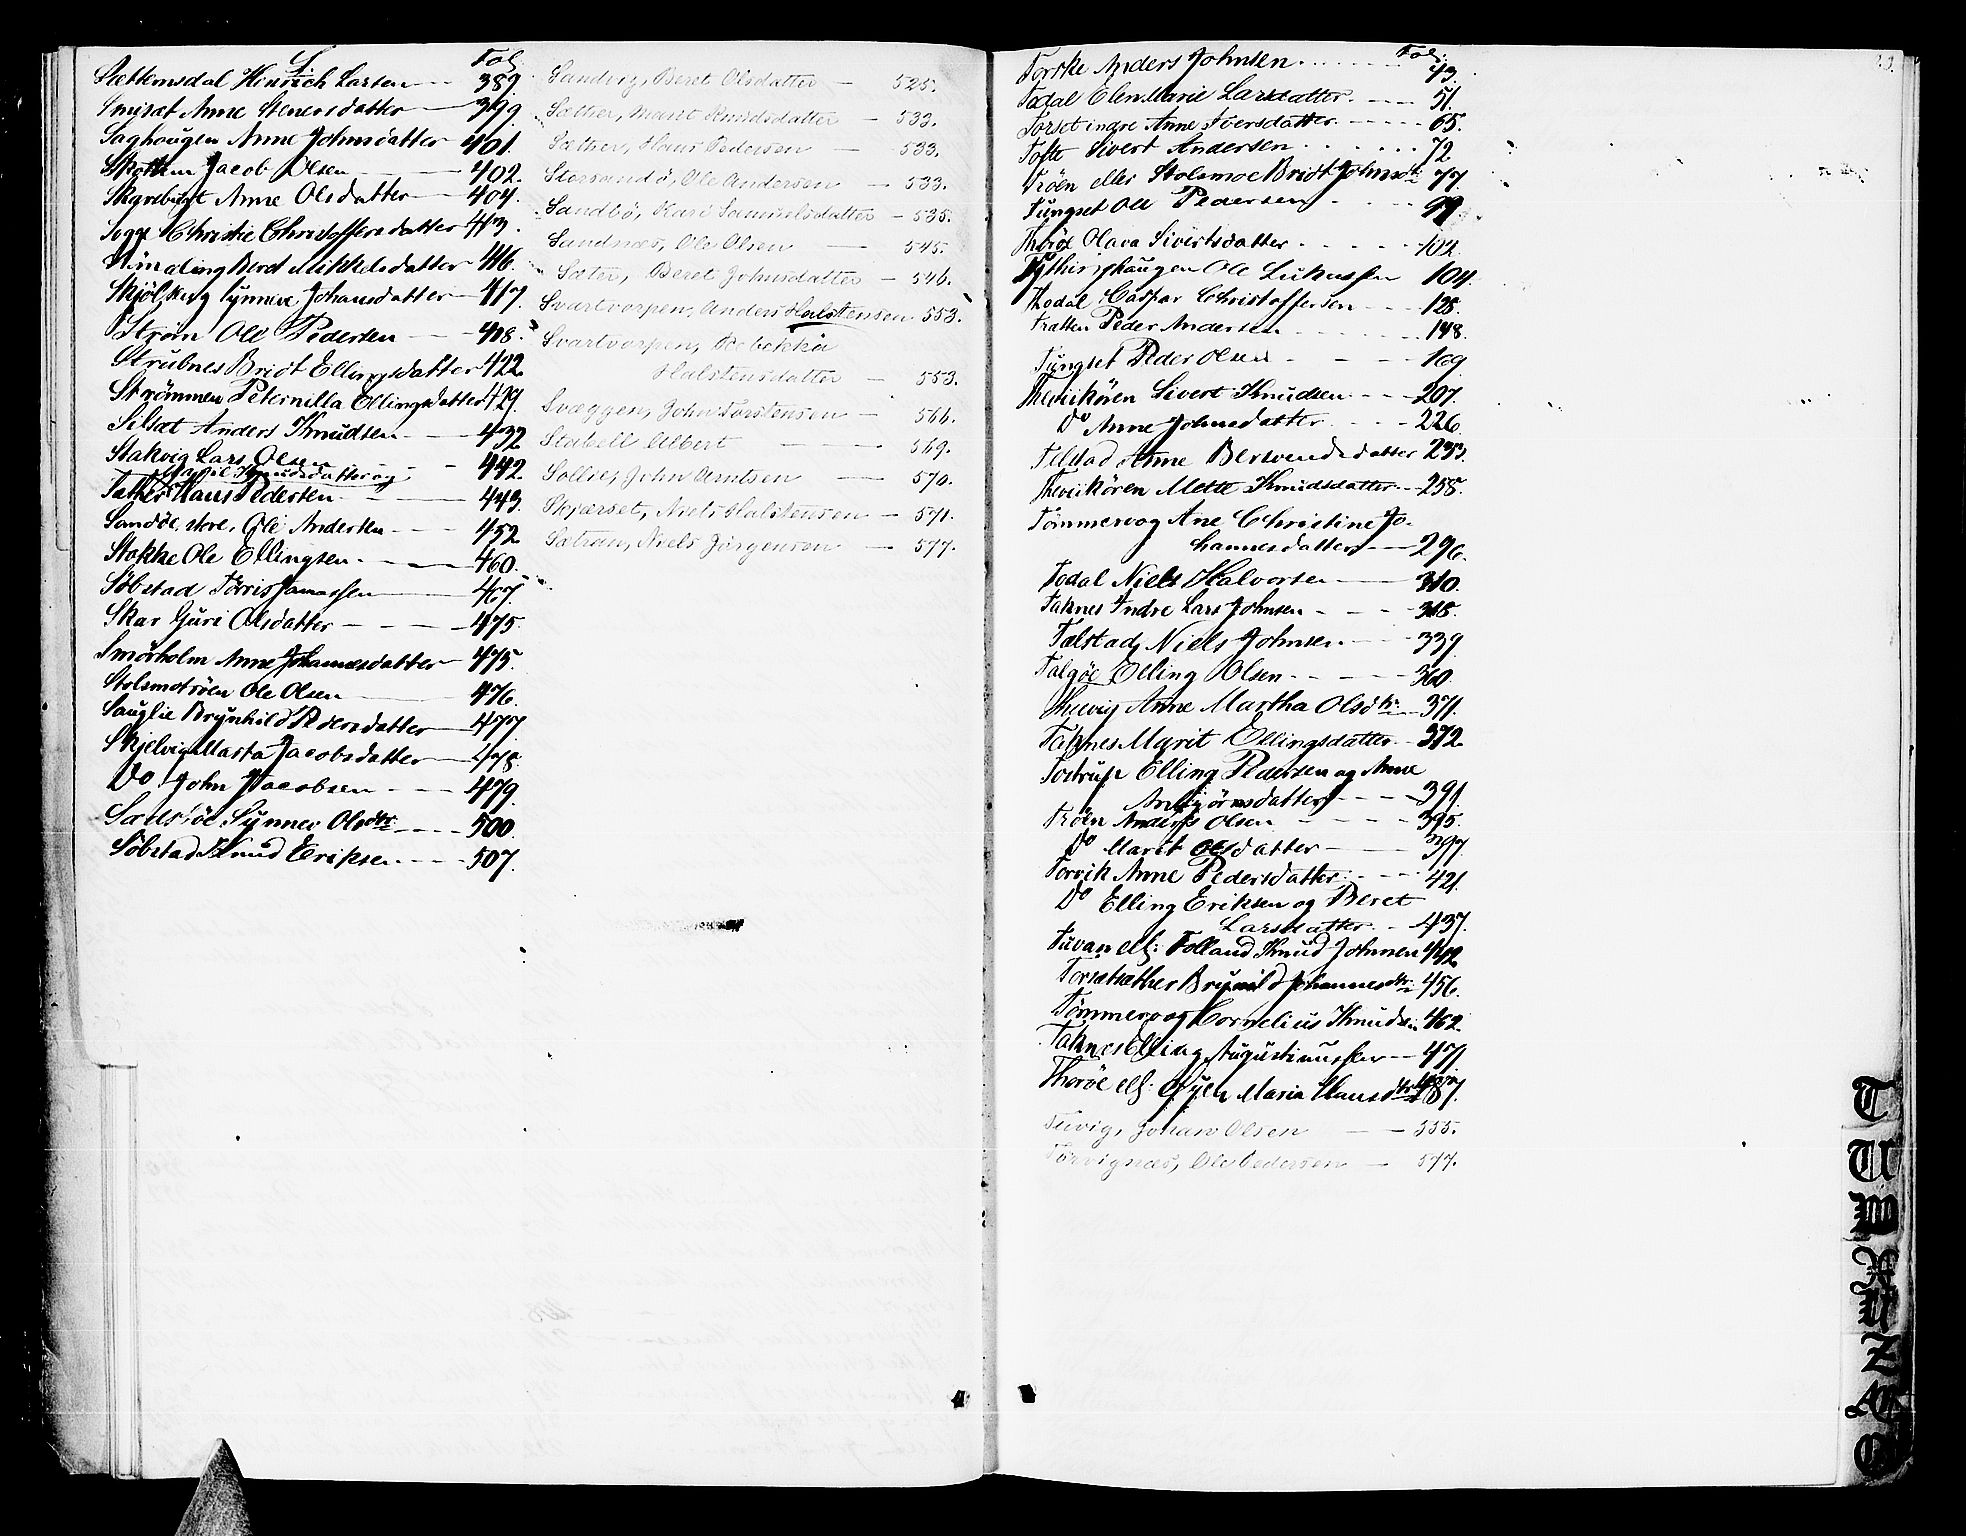 S. Fol.
Sættemsdal Hinrich Larsen 389.
Smiset Anne Stenersdatter 399
Saghougen Anne Johnsdatter 401.
Jacob Olsen 402.
Anne Olsdatter 404.
Sogge Christie Christoffersdatter 413.
Beret Mikkelsdatter 416.
Synneve Johansdatter 417.
Strøm Ole Pedersen 418.
Strubnes Bridt Ellingsdatter 422.
Strömmen Peternilla Ellingsdatter 429.
Silset Anders Knudsen 432
Stakvig Lars Olsen 442.
Knudsdatter og
Sæther Hans Pedersen 443.
Sandöe, store, Ole Andersen 452.
Stokke Ole Ellingsen 460.
Söbstad Törris Jonassen 467.
Skar Guri Olsdatter 475.
Smörholm Anne Johannesdatter 475.
Stolsmotröen Ole Olsen 476.
Sauglie Brynhild Pedersdatter 477.
Skjelvig Marta Jacobsdatter 478.
Do John Jacobsen 479.
Synnev Olsdtr 500.
Söbstad Knud Eriksen 507.
Sandvig, Beret Olsdatter 525.
Sæther, Marit Knudsdatter 533.
Sæther, Hans Pedersen 533.
Storsandö, Ole Andersen 533.
Sandbö, Kari Samuelsdatter 535.
Sandnæs, Ole Olsen 545.
Sæter, Beret Johnsdatter 546.
Svartvorpen, Anders Halstensen 553.
Svartvorpen, Rebekka
Halstensdatter 553.
Svæggen, John Torstensen 566.
Stabell Albert 569.
Sollie, John Arntsen 570.
Skjærset, Niels Halstensen 571.
Sætran, Niels Jörgensen 577.
Fol.
Torske Anders Johnsen 43.
Todal Elen Marie Larsdatter 51.
Torset indre Anne Iversdatter 65.
Tofte Sivert Andersen 72
Tröen eller Stolsmoe Bridt Johnsd 77.
Tungset Ole Pedersen 99.
Thoröe Olava Sivertsdatter 102.
Tytheryhaugen Ole Lukassen 104.
Thodal Caspar Christoffersen 128.
Tratten Peder Andersen 148.
Tungset Peder Olsen 169
Thevikören Sivert Knudsen 207.
Do Anne Johnsdatter 226.
Telstad Anne Bersvendsdatter 233.
Thevikören Mette Knudsdatter 258.
Tömmervog Ane Christine Jo-
hannesdatter 296.
Todal Niels Halvorsen 310.
Taknes Indre Lars Johnsen 318.
Talstad, Niels Johnsen 339
Talgöe Elling Olsen 360.
Thuevig Anne Martha Olsdtr 371.
Taknes Marit Ellingsdatter 372.
Tostrup Elling Pedersen og Anne
Anbjörnsdatter 391.
Tröen Anders Olsen 395.
Do Marit Olsdatter 397.
Torvik Anne Pedersdatter 421.
Do Elling Eriksen og Beret
Larsdatter 437.
Tuvan ell: Folland Knud Johnsen 442
Torsetsæther Brynild Johannesdtr 456.
Tömmervog Cornelius Knudsen 462.
Taknes Elling Augustinussen 471.
Thoröe ell: Maria Hansdtr 487.
Tuvig, Johan Olsen 555.
Torvignæs, Ole Pedersen 577.
T
U
Z
Æ
Ø